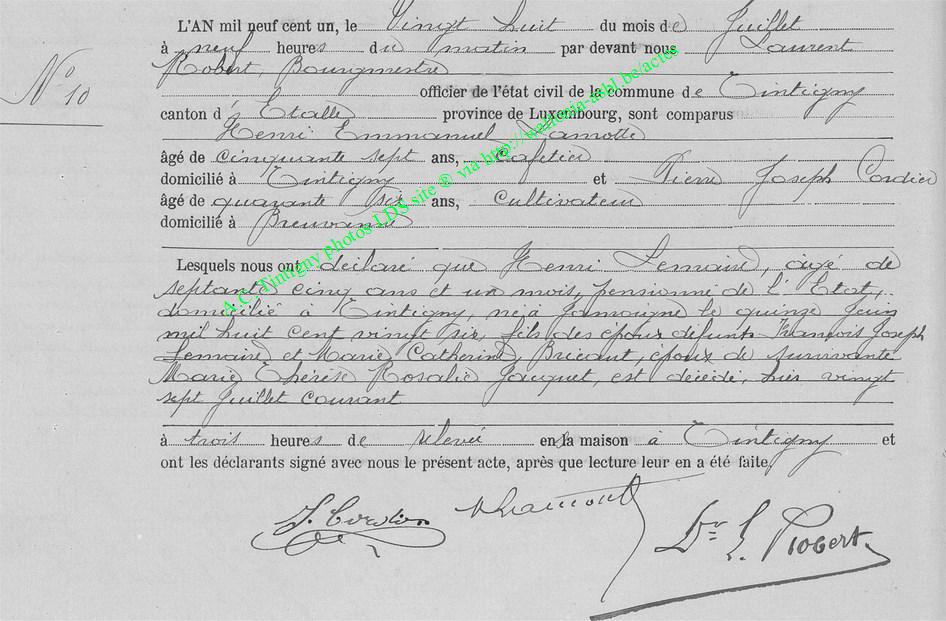 L'AN mil neuf cent un, le Vingt huit du mois de Juillet
à neuf heures du matin par devant nous Laurent
Robert, Bourgmestre
N° 10
officier de l'état civil de la commune de Tintigny
canton d' Etalle province de Luxembourg, sont comparus
Henri Emmanuel Lamotte
âgé de cinquante sept ans, cafetier
domicilié à Tintigny et Pierre Joseph Cordier
âgé de quarante six ans, cultivateur
domicilié à Breuvanne
Lesquels nous ont déclaré que Henri Lemaire, âgé de
septante cinq ans et un mois, pensionné de l'Etat,
domicilié à Tintigny, né à Jamoigne le quinze Juin
mil huit cent vingt six, fils des époux défunts François Joseph
Lemaire et Marie Catherine Bricant, époux de survivante
Marie Thérèse Rosalie Jacquet, est décédé, hier vingt
sept Juillet courant
à trois heures de relevée en sa maison à Tintigny et
ont les déclarants signé avec nous le présent acte, après que lecture leur en a été faite.
J. Cordier
Dr L. Robert
A.C. Tintigny photos LDS site ® via http://wallonia-asbl.be/actes